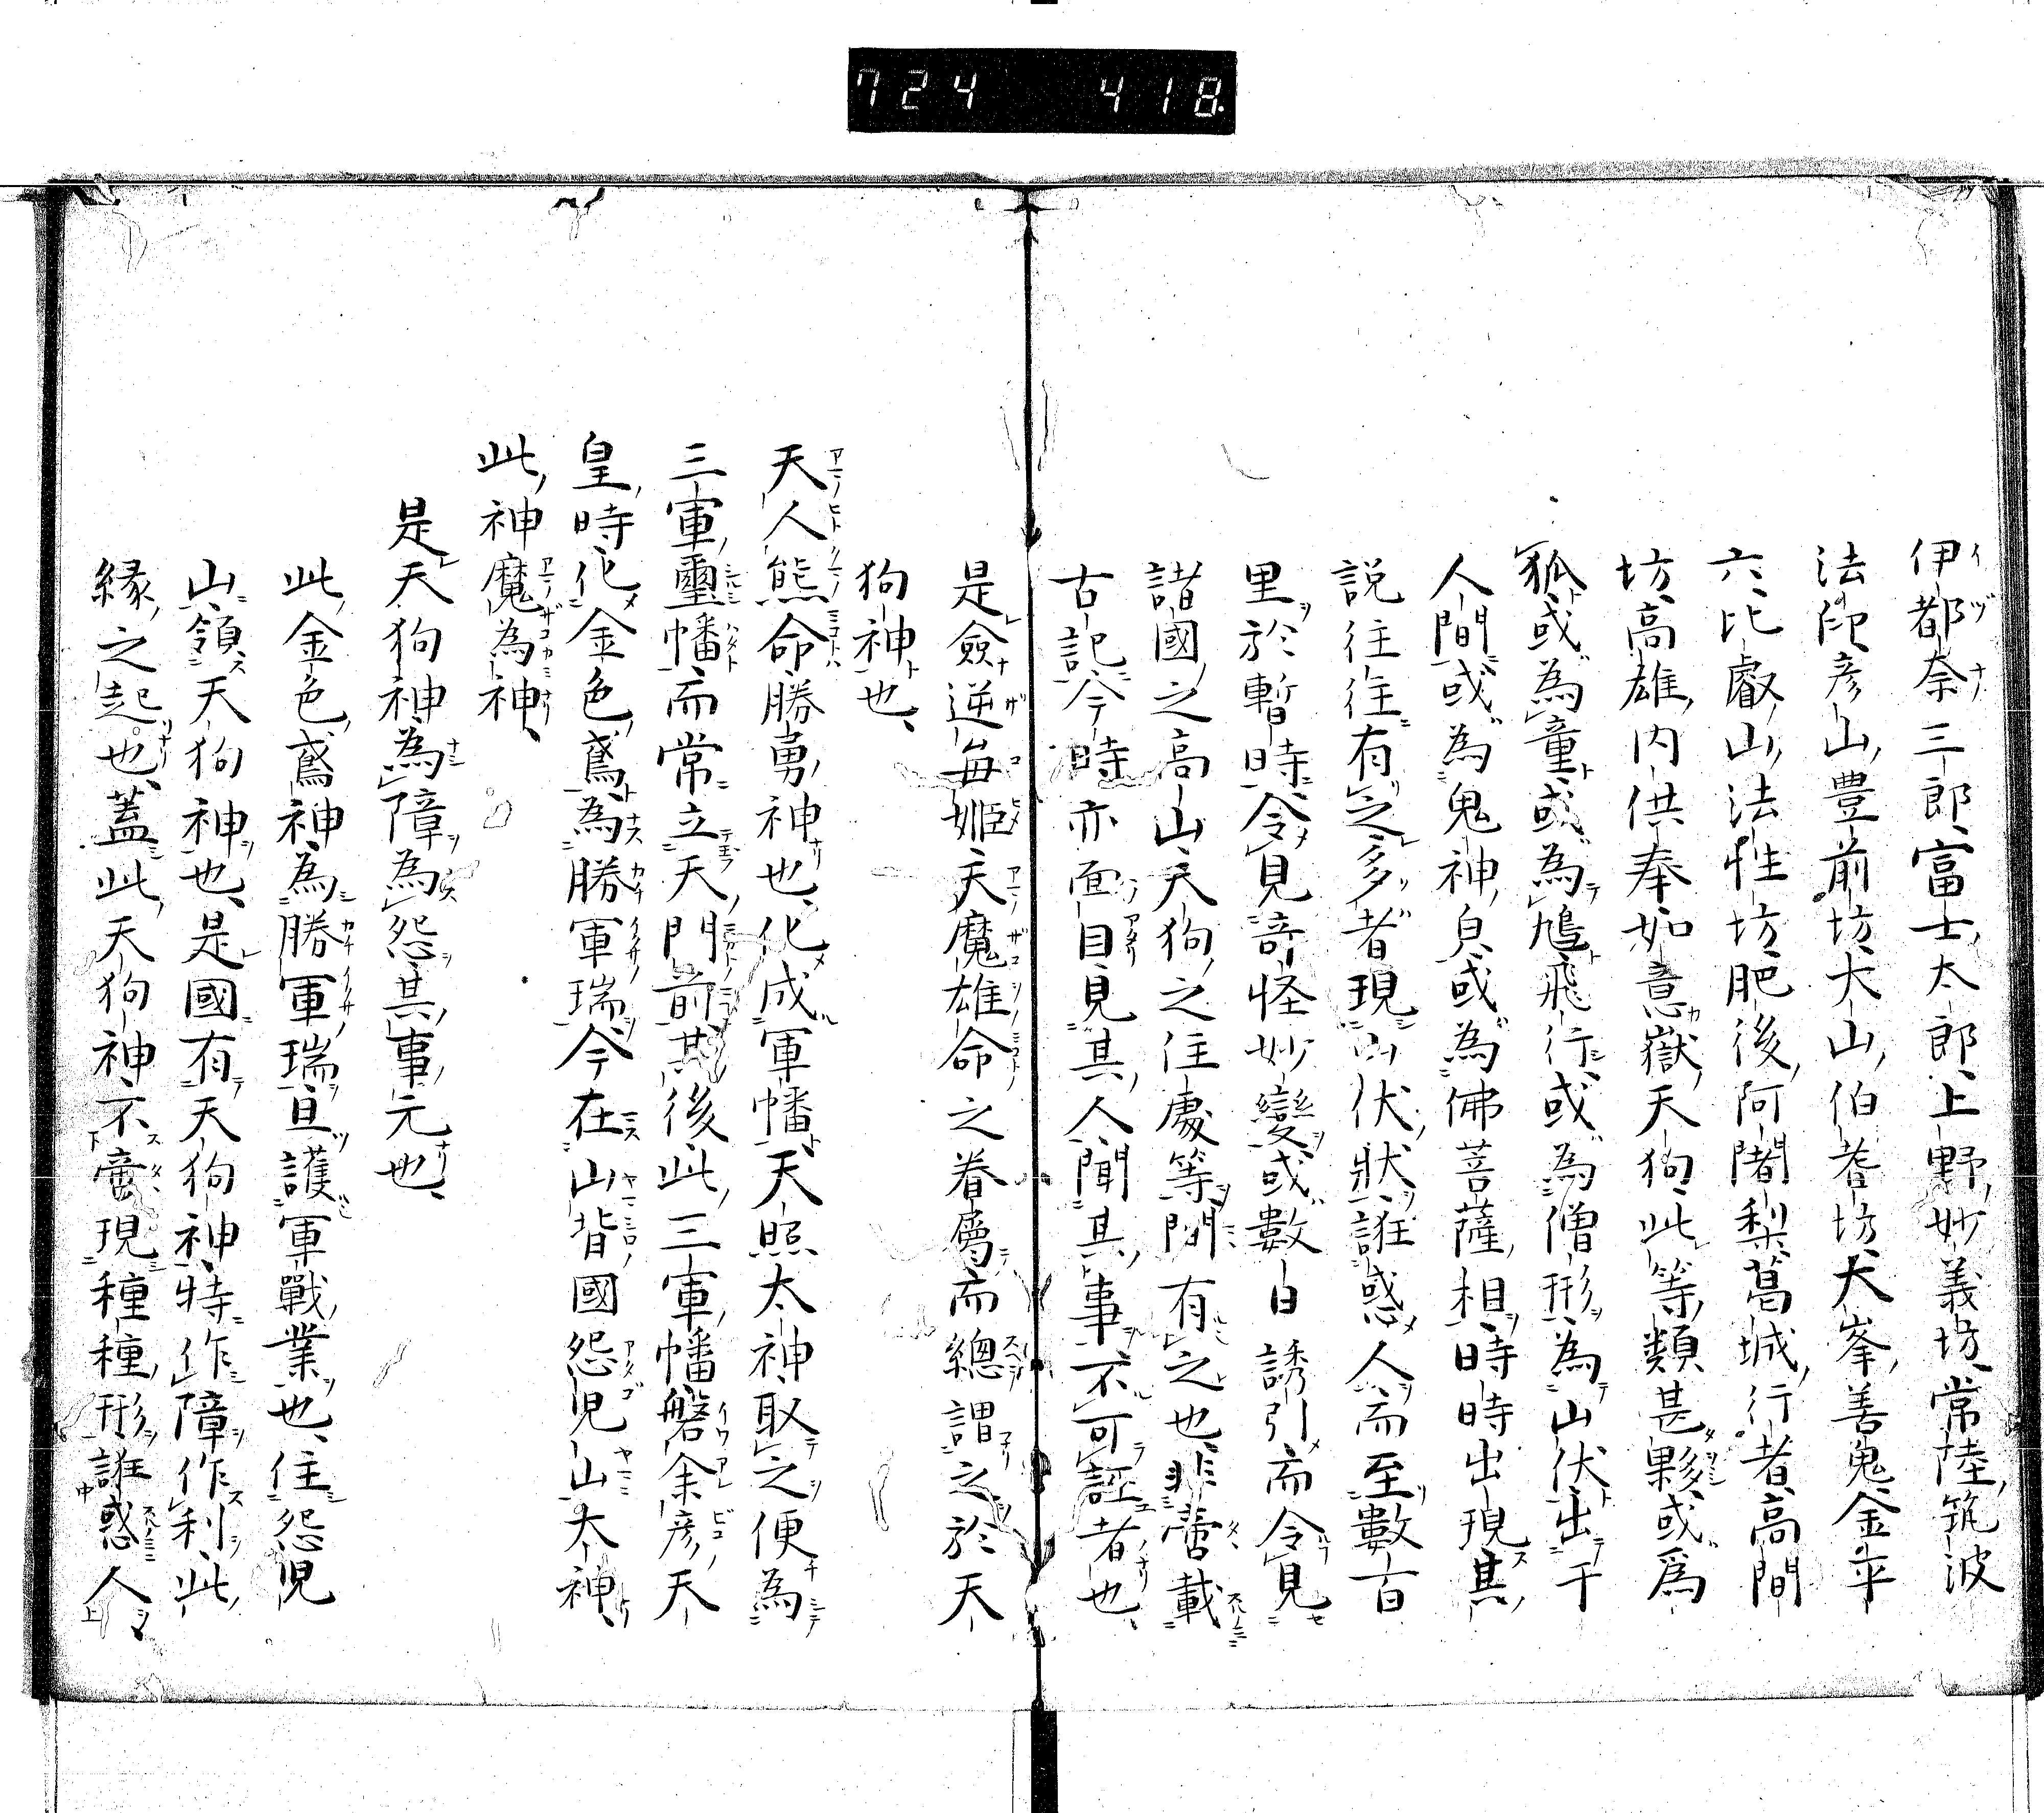 724 418
伊都奈三郎富士太郎上野妙義坊常陸筑波
法印彦山豊前坊大山伯耆坊大峯善鬼金平
六比叡山法性坊肥後阿闍梨葛城行者高間
坊高雄内供奉如意嶽天狗此等類甚夥或爲
狐或為童或為鳩飛行或為僧形為山伏出于
人間或為鬼神皃或為佛菩薩相時時出現其
説往往有之多者現山伏狀誑惑人而至數百
里於暫時令見奇怪妙變或數日誘引而令見
諸國之高山天狗之住處等間有之也非啻載
古記今時亦面目見其人聞其事不可誣者也
是僉逆毎姫天魔雄命之眷屬而總謂之於天
狗神也
天人熊命勝勇神也化成軍幡天照太神取之便為
三軍璽幡而常立天門前其後此三軍幡磐余彦天
皇時化金色鳶為勝軍瑞今在山背國怨児山太神
此神魔為神
是天狗神為障為怨其事元也
此金色鳶神為勝軍瑞且護軍戰業也住怨児
山領天狗神也是國有天狗神特作障作利此
緣之起也蓋此天狗神不啻現種種形誑惑人